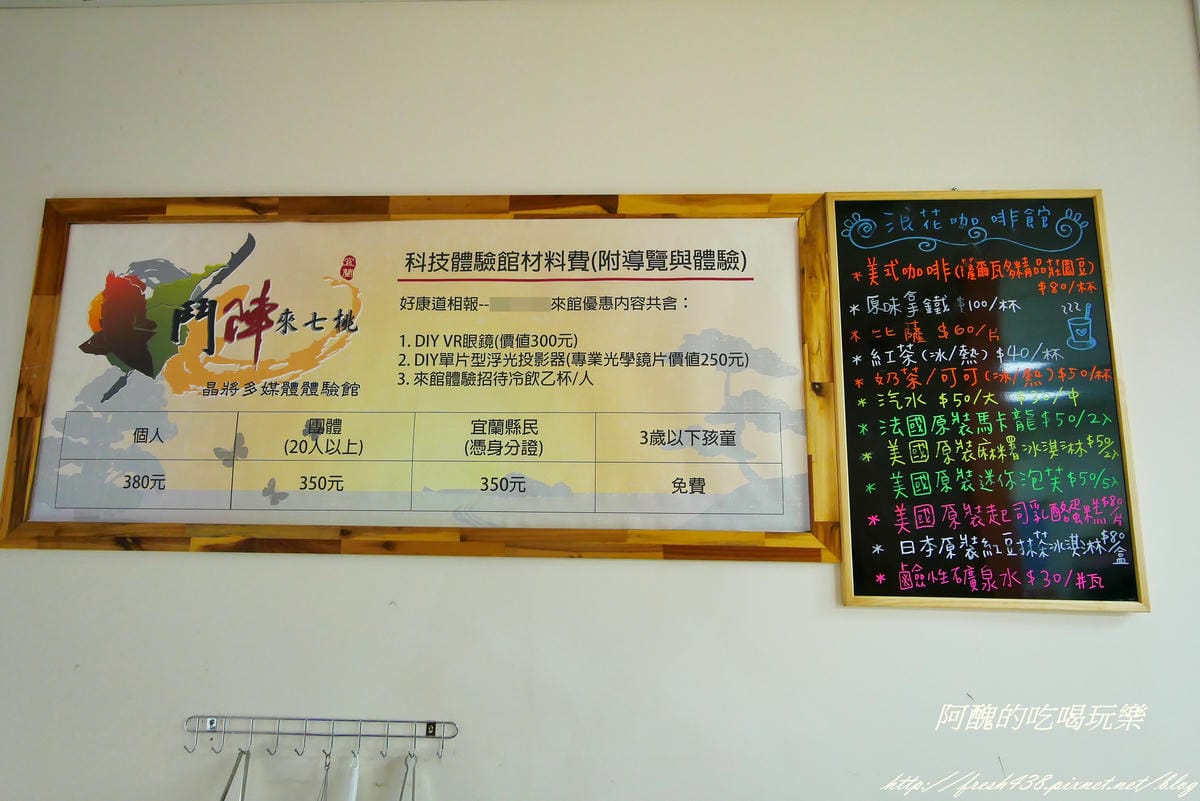 宜蘭
鬥陣來七桃
晶將多媒體體驗館
科技體驗館材料費(附導覽與體驗)
好康道相報--來館優惠內容共含：
1. DIY VR眼鏡(價值300元)
2. DIY單片型浮光投影器(專業光學鏡片價值250元)
3. 來館體驗招待冷飲乙杯/人
個人
團體
(20人以上)
宜蘭縣民
(憑身分證)
3歲以下孩童
380元
350元
350元
免費
浪花咖啡館
*美式咖啡(薩爾瓦多精品莊園豆)
$80/杯
*原味拿鐵 $100/杯
*比薩 $60/片
*紅茶(冰/熱) $40/杯
*奶茶/可可(冰/熱) $50/杯
*汽水 $50/大 $30/中
*法國原裝馬卡龍 $50/2入
*美國原裝麻糬冰淇淋 $50/2入
*美國原裝迷你泡芙 $50/5入
*美國原裝起司乳酪蛋糕 $80/片
*日本原裝紅豆抹茶冰淇淋 $80/盒
*鹼性礦泉水 $30/瓶
阿醜的吃喝玩樂
http://fresh438.pixnet.net/blog